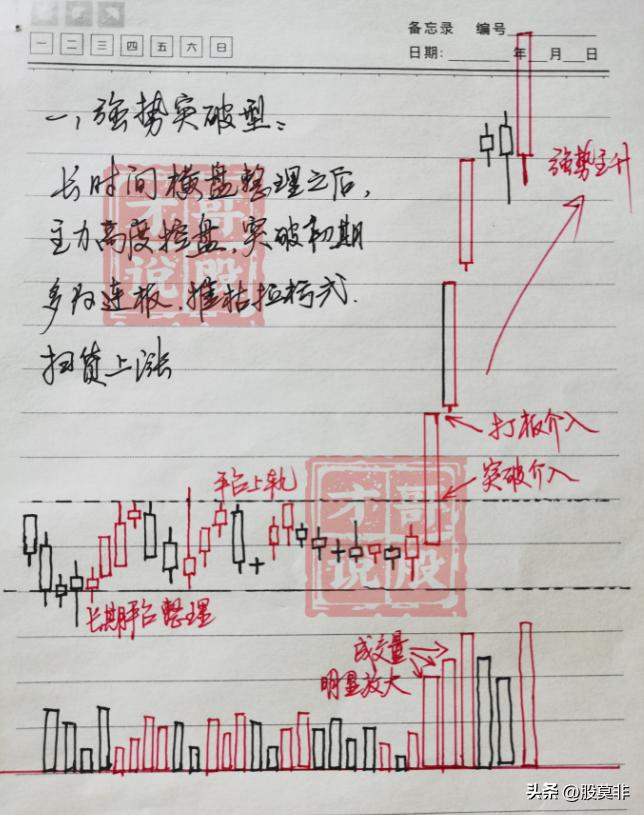 备忘录 编号
一 二 三 四 五 六 日
日期: 年 月 日
一,强势突破型:
长时间横盘整理之后,
主力高度控盘,突破初期
多为连板,摧枯拉朽式
扫货上涨
强势主升
打板介入
突破介入
平台上轨
长期平台整理
成交量
明显放大
才哥
说股
才哥
说股
头条 @股莫非